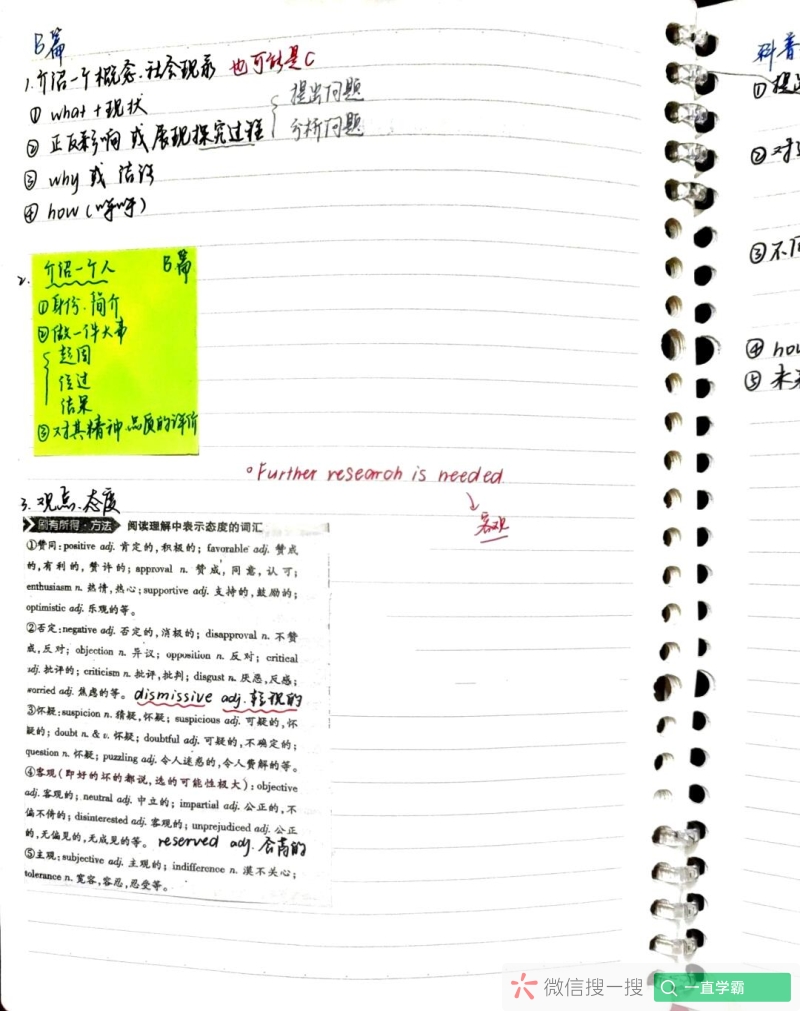 B篇
1.介绍一个概念.社会现象 也可能是C
① what+现状
② 正反影响 或 展现探究过程 { 提出问题
分析问题
③ why 或 结论
④ how(呼吁)
2. 介绍一个人 B篇
①身份.简介
②做一件大事
起因
经过
结果
③对其精神.品质的评价
。Further research is needed
客观
3.观点.态度
刷有所得·方法 阅读理解中表示态度的词汇
①赞同:positive adj. 肯定的,积极的; favorable adj. 赞成
的,有利的,赞许的; approval n. 赞成,同意,认可;
enthusiasm n. 热情,热心; supportive adj. 支持的,鼓励的;
optimistic adj. 乐观的等。
②否定:negative adj. 否定的,消极的; disapproval n. 不赞
成,反对; objection n. 异议; opposition n. 反对; critical
adj. 批评的; criticism n. 批评,批判; disgust n. 厌恶,反感;
worried adj. 焦虑的等。 dismissive adj. 轻视的
③怀疑:suspicion n. 猜疑,怀疑; suspicious adj. 可疑的,怀
疑的; doubt n. & v. 怀疑; doubtful adj. 可疑的,不确定的;
question n. 怀疑; puzzling adj. 令人迷惑的,令人费解的等。
④客观(即好的坏的都说,选的可能性极大):objective
adj. 客观的; neutral adj. 中立的; impartial adj. 公正的,不
偏不倚的; disinterested adj. 客观的; unprejudiced adj. 公正
的,无偏见的,无成见的等。 reserved adj.
⑤主观:subjective adj. 主观的; indifference n. 漠不关心;
tolerance n. 宽容,容忍,忍受等。
科普
①提出
②对
③不同
④ how
⑤ 未来
微信搜一搜 一直学霸